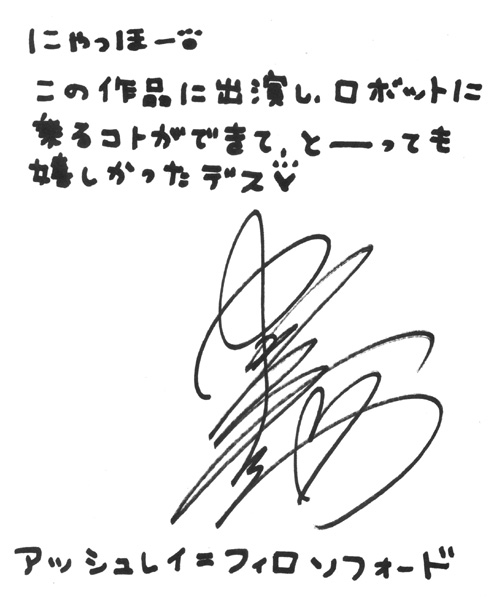 にゃっほー
この作品に出演し、ロボットに
乗るコトができて、とーっても
嬉しかったデス
アッシュレイ=フィロソフォード